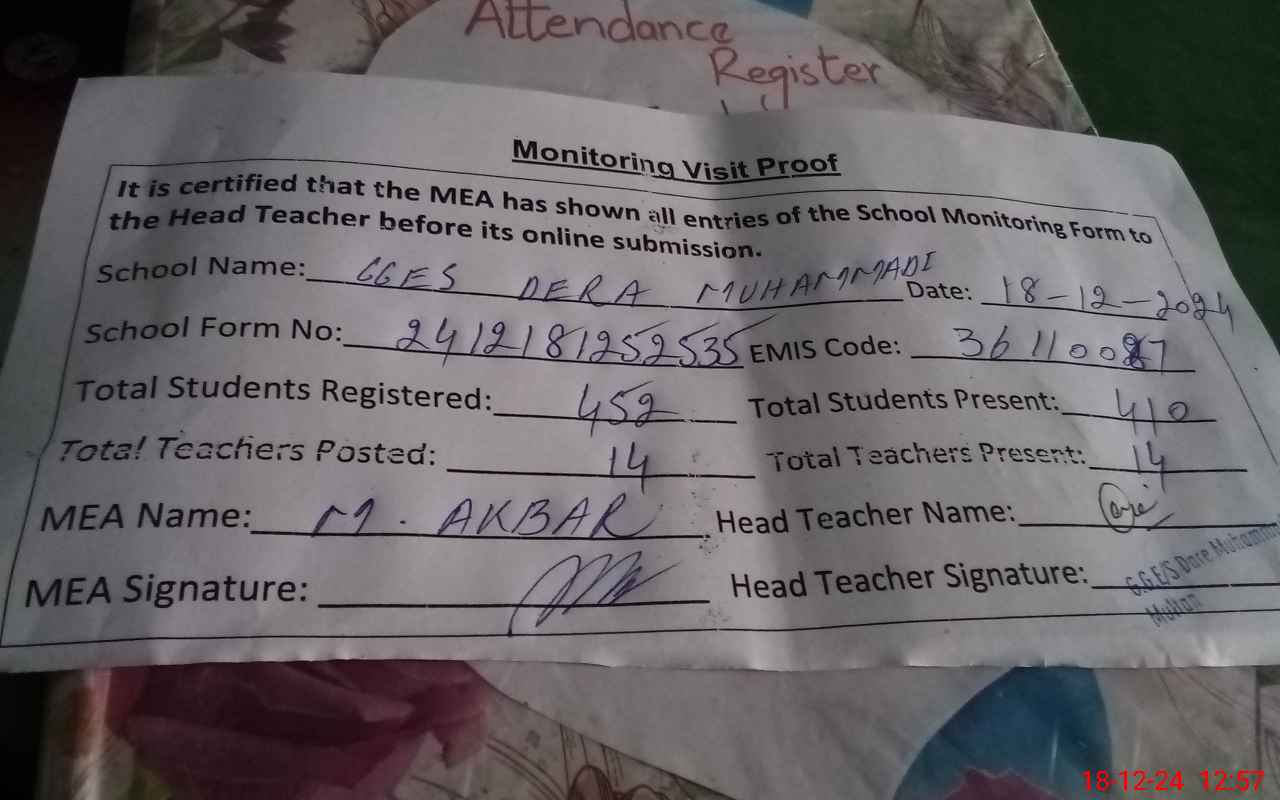 Attendance
Register
Monitoring Visit Proof
It is certified that the MEA has shown all entries of the School Monitoring Form to
the Head Teacher before its online submission.
School Name: GGES DERA MUHAMMADI Date: 18-12-2024
School Form No: 2412181252535 EMIS Code: 36110087
Total Students Registered: 452 Total Students Present: 410
Total Teachers Posted: 14 Total Teachers Present: 14
MEA Name: M. AKBAR Head Teacher Name:
MEA Signature: Head Teacher Signature:
G.G.E/S Dare Muhamm
Multan
18-12-24 12:57